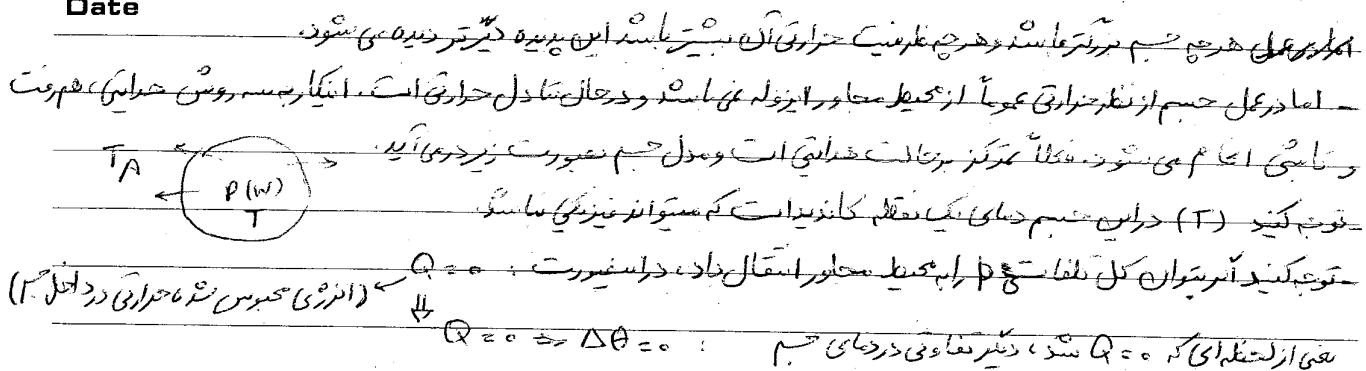 Date
هرچه جسم بزرگتر باشد و هرچه ظرفیت حرارتی آن بیشتر باشد این پدیده دیرتر دیده می شود.
- اما در عمل جسم از نظر حرارتی عموماً از محیط مجاور ایزوله نمی باشد و در حال تبادل حرارتی است. اینکار به سه روش هدایتی، همرفت
و تابشی انجام می شود. فعلاً تمرکز بر حالت هدایتی است و مدل جسم بصورت زیر در می آید.
T_A P(W) T
- توجه کنید (T) در این جسم دمای یک نقطه کاندید است که میتواند فیزیکی نباشد.
- توجه کنید اگر بتوان کل تلفات P را به محیط مجاور انتقال داد، در اینصورت : Q = 0 ← (انرژی محبوس شده حرارتی در داخل جسم)
⇓
یعنی از لحظه ای که Q = 0 شد، دیگر تفاوتی در دمای جسم : Q = 0 ⇒ Δθ = 0